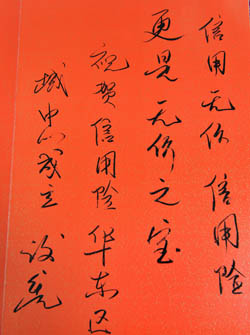 信用无价 信用险
更是无价之宝
祝贺信用险华东区
域中心成立